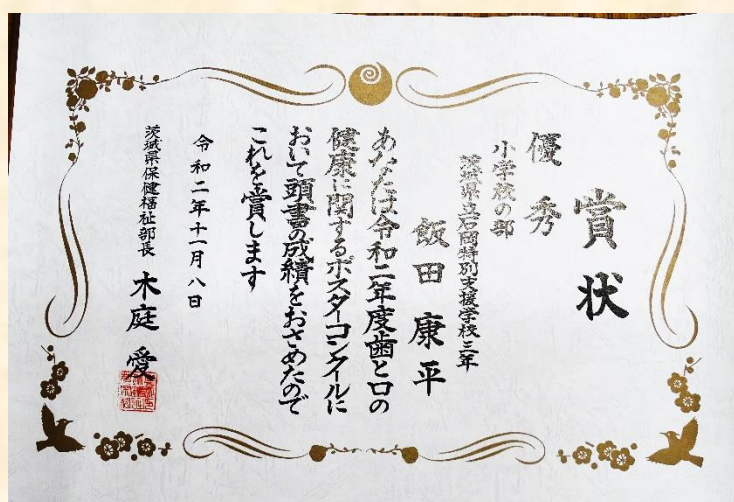 賞状
優秀
小学校の部
茨城県立石岡特別支援学校三年
飯田康平
あなたは令和二年度歯と口の
健康に関するポスターコンクールに
おいて頭書の成績をおさめたので
これを賞します
令和二年十一月八日
茨城県保健福祉部長 木庭愛